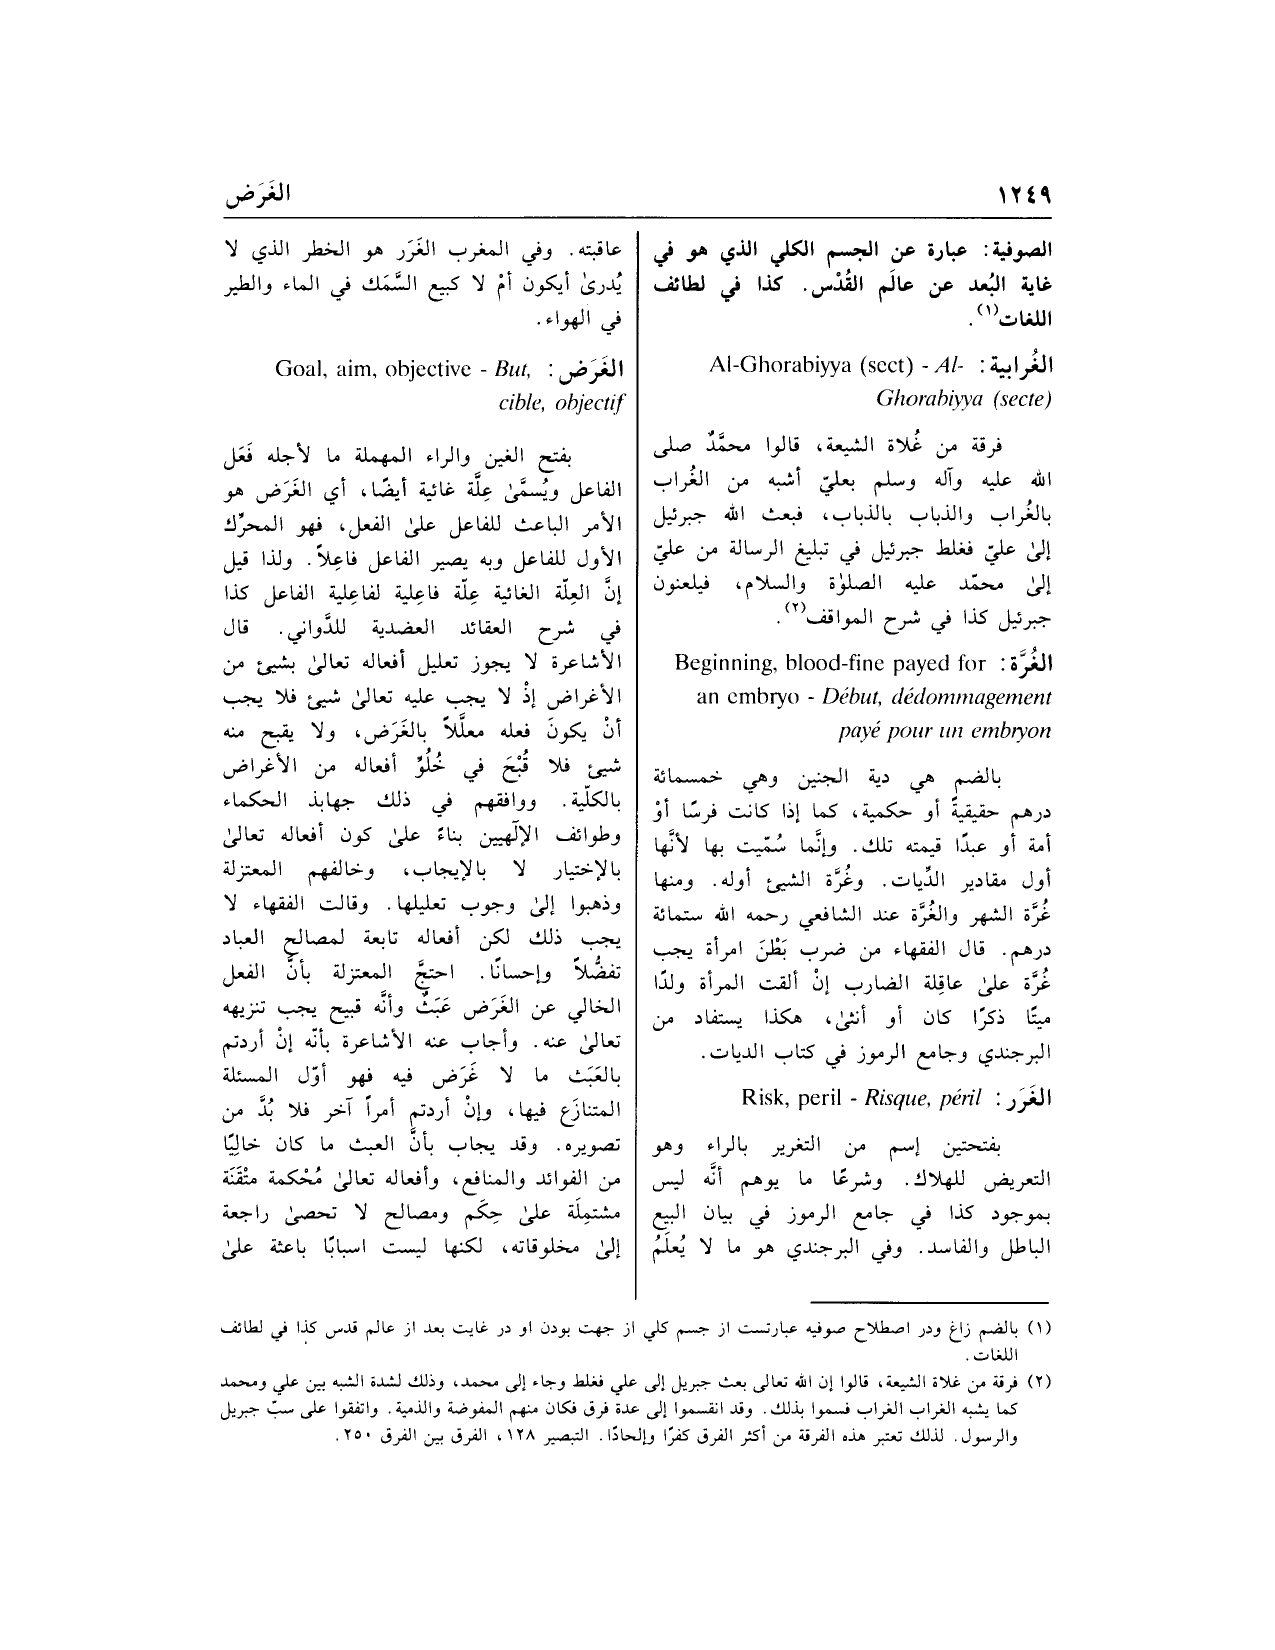 ١٢٤٩
الغَرَض
الصوفية: عبارة عن الجسم الكلي الذي هو في
غاية البُعد عن عالَم القُدْس. كذا في لطائف
اللغات(١).
الغُرابية: Al-Ghorabiyya (sect) - Al-
Ghorabiyya (secte)
فرقة من غُلاة الشيعة، قالوا محمَّدٌ صلى
الله عليه وآله وسلم بعليّ أشبه من الغُراب
بالغُراب والذباب بالذباب، فبعث الله جبرئيل
إلىٰ عليّ فغلط جبرئيل في تبليغ الرسالة من عليّ
إلىٰ محمّد عليه الصلوٰة والسلام، فيلعنون
جبرئيل كذا في شرح المواقف(٢).
الغُرَّة: Beginning, blood-fine payed for
an embryo - Début, dédommagement
payé pour un embryon
بالضم هي دية الجنين وهي خمسمائة
درهم حقيقيةً أو حكمية، كما إذا كانت فرسًا أوْ
أمة أو عبدًا قيمته تلك. وإنَّما سُمّيت بها لأنَّها
أول مقادير الدِّيات. وغُرَّة الشيئ أوله. ومنها
غُرَّة الشهر والغُرَّة عند الشافعي رحمه الله ستمائة
درهم. قال الفقهاء من ضرب بَطْنَ امرأة يجب
غُرَّة علىٰ عاقِلة الضارب إنْ ألقت المرأة ولدًا
ميتًا ذكرًا كان أو أنثىٰ، هكذا يستفاد من
البرجندي وجامع الرموز في كتاب الديات.
الغَرَر: Risk, peril - Risque, péril
بفتحتين إسم من التغرير بالراء وهو
التعريض للهلاك. وشرعًا ما يوهم أنَّه ليس
بموجود كذا في جامع الرموز في بيان البيع
الباطل والفاسد. وفي البرجندي هو ما لا يُعلَمُ
عاقبته. وفي المغرب الغَرَر هو الخطر الذي لا
يُدرىٰ أيكون أمْ لا كبيع السَّمَك في الماء والطير
في الهواء.
الغَرَض: Goal, aim, objective - But,
cible, objectif
بفتح الغين والراء المهملة ما لأجله فَعَل
الفاعل ويُسمَّىٰ عِلَّة غائية أيضًا، أي الغَرَض هو
الأمر الباعث للفاعل علىٰ الفعل، فهو المحرِّك
الأول للفاعل وبه يصير الفاعل فاعِلاً. ولذا قيل
إنَّ العِلّة الغائية عِلّة فاعِلية لفاعِلية الفاعل كذا
في شرح العقائد العضدية للدَّواني. قال
الأشاعرة لا يجوز تعليل أفعاله تعالىٰ بشيئ من
الأغراض إذْ لا يجب عليه تعالىٰ شيئ فلا يجب
أنْ يكونَ فعله معلَّلاً بالغَرَض، ولا يقبح منه
شيئ فلا قُبْحَ في خُلُوِّ أفعاله من الأغراض
بالكلّية. ووافقهم في ذلك جهابذ الحكماء
وطوائف الإلٓهيين بناءً علىٰ كون أفعاله تعالىٰ
بالإختيار لا بالإيجاب، وخالفهم المعتزلة
وذهبوا إلىٰ وجوب تعليلها. وقالت الفقهاء لا
يجب ذلك لكن أفعاله تابعة لمصالح العباد
تفضُّلاً وإحسانًا. احتجَّ المعتزلة بأنَّ الفعل
الخالي عن الغَرَض عَبَثٌ وأنَّه قبيح يجب تنزيهه
تعالىٰ عنه. وأجاب عنه الأشاعرة بأنّه إنْ أردتم
بالعَبَث ما لا غَرَض فيه فهو أوّل المسئلة
المتنازَع فيها، وإنْ أردتم أمراً آخر فلا بُدَّ من
تصويره. وقد يجاب بأنَّ العبث ما كان خاليًا
من الفوائد والمنافع، وأفعاله تعالىٰ مُحْكمة متْقَنَة
مشتمِلَة علىٰ حِكَم ومصالح لا تحصىٰ راجعة
إلىٰ مخلوقاته، لكنها ليست اسبابًا باعثة علىٰ
(١) بالضم زاغ ودر اصطلاح صوفيه عبارتست از جسم كلي از جهت بودن او در غايت بعد از عالم قدس كذا في لطائف
اللغات.
(٢) فرقة من غلاة الشيعة، قالوا إن الله تعالى بعث جبريل إلى علي فغلط وجاء إلى محمد، وذلك لشدة الشبه بين علي ومحمد
كما يشبه الغراب الغراب فسموا بذلك. وقد انقسموا إلى عدة فرق فكان منهم المفوضة والذمية. واتفقوا على سبّ جبريل
والرسول. لذلك تعتبر هذه الفرقة من أكثر الفرق كفرًا وإلحادًا. التبصير ١٢٨، الفرق بين الفرق ٢٥٠.